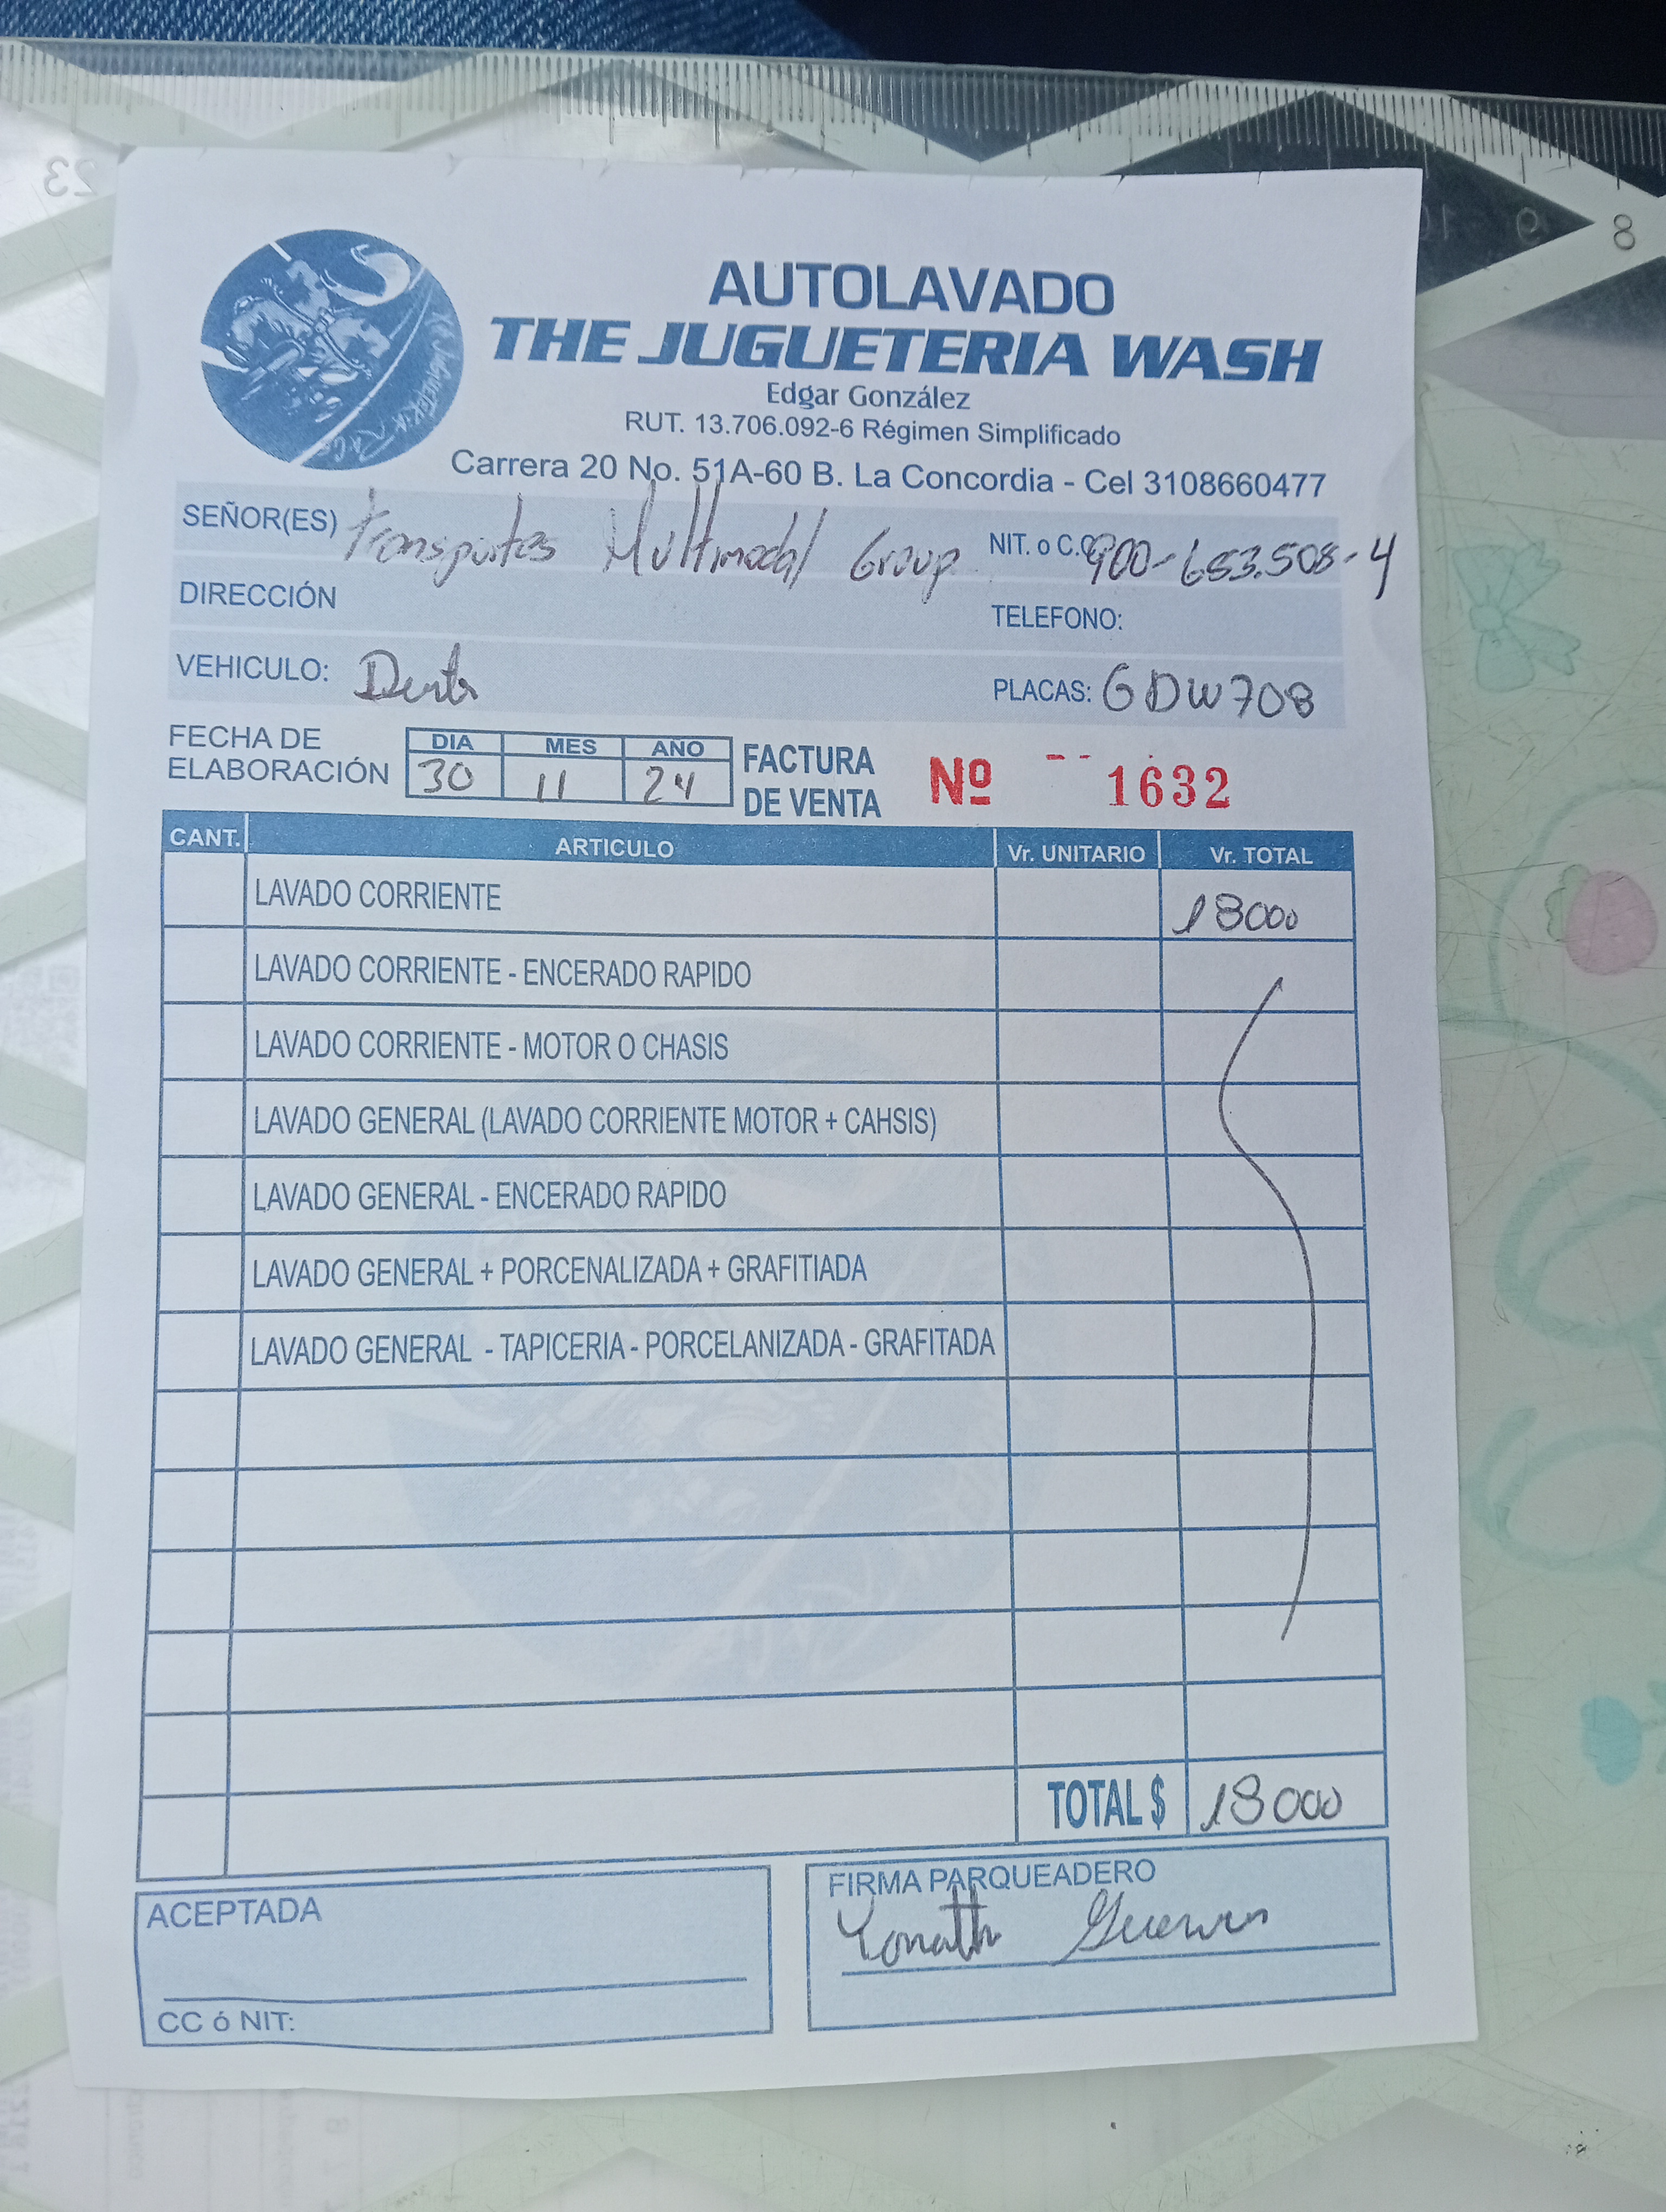 AUTOLAVADO
THE JUGUETERIA WASH
Edgar González
RUT. 13.706.092-6 Régimen Simplificado
Carrera 20 No. 51A-60 B. La Concordia - Cel 3108660477
SEÑOR(ES) Transportes Multimodal Group NIT. o C.C. 900-653.508-4
DIRECCIÓN TELEFONO:
VEHICULO: PLACAS: GDW708
FECHA DE ELABORACIÓN DIA MES AÑO
30 11 24
FACTURA DE VENTA Nº 1632
CANT. ARTICULO Vr. UNITARIO Vr. TOTAL
LAVADO CORRIENTE 18000
LAVADO CORRIENTE - ENCERADO RAPIDO
LAVADO CORRIENTE - MOTOR O CHASIS
LAVADO GENERAL (LAVADO CORRIENTE MOTOR + CAHSIS)
LAVADO GENERAL - ENCERADO RAPIDO
LAVADO GENERAL + PORCENALIZADA + GRAFITIADA
LAVADO GENERAL - TAPICERIA - PORCELANIZADA - GRAFITADA
TOTAL $ 18000
ACEPTADA
CC ó NIT:
FIRMA PARQUEADERO
Yonath
23
9
8